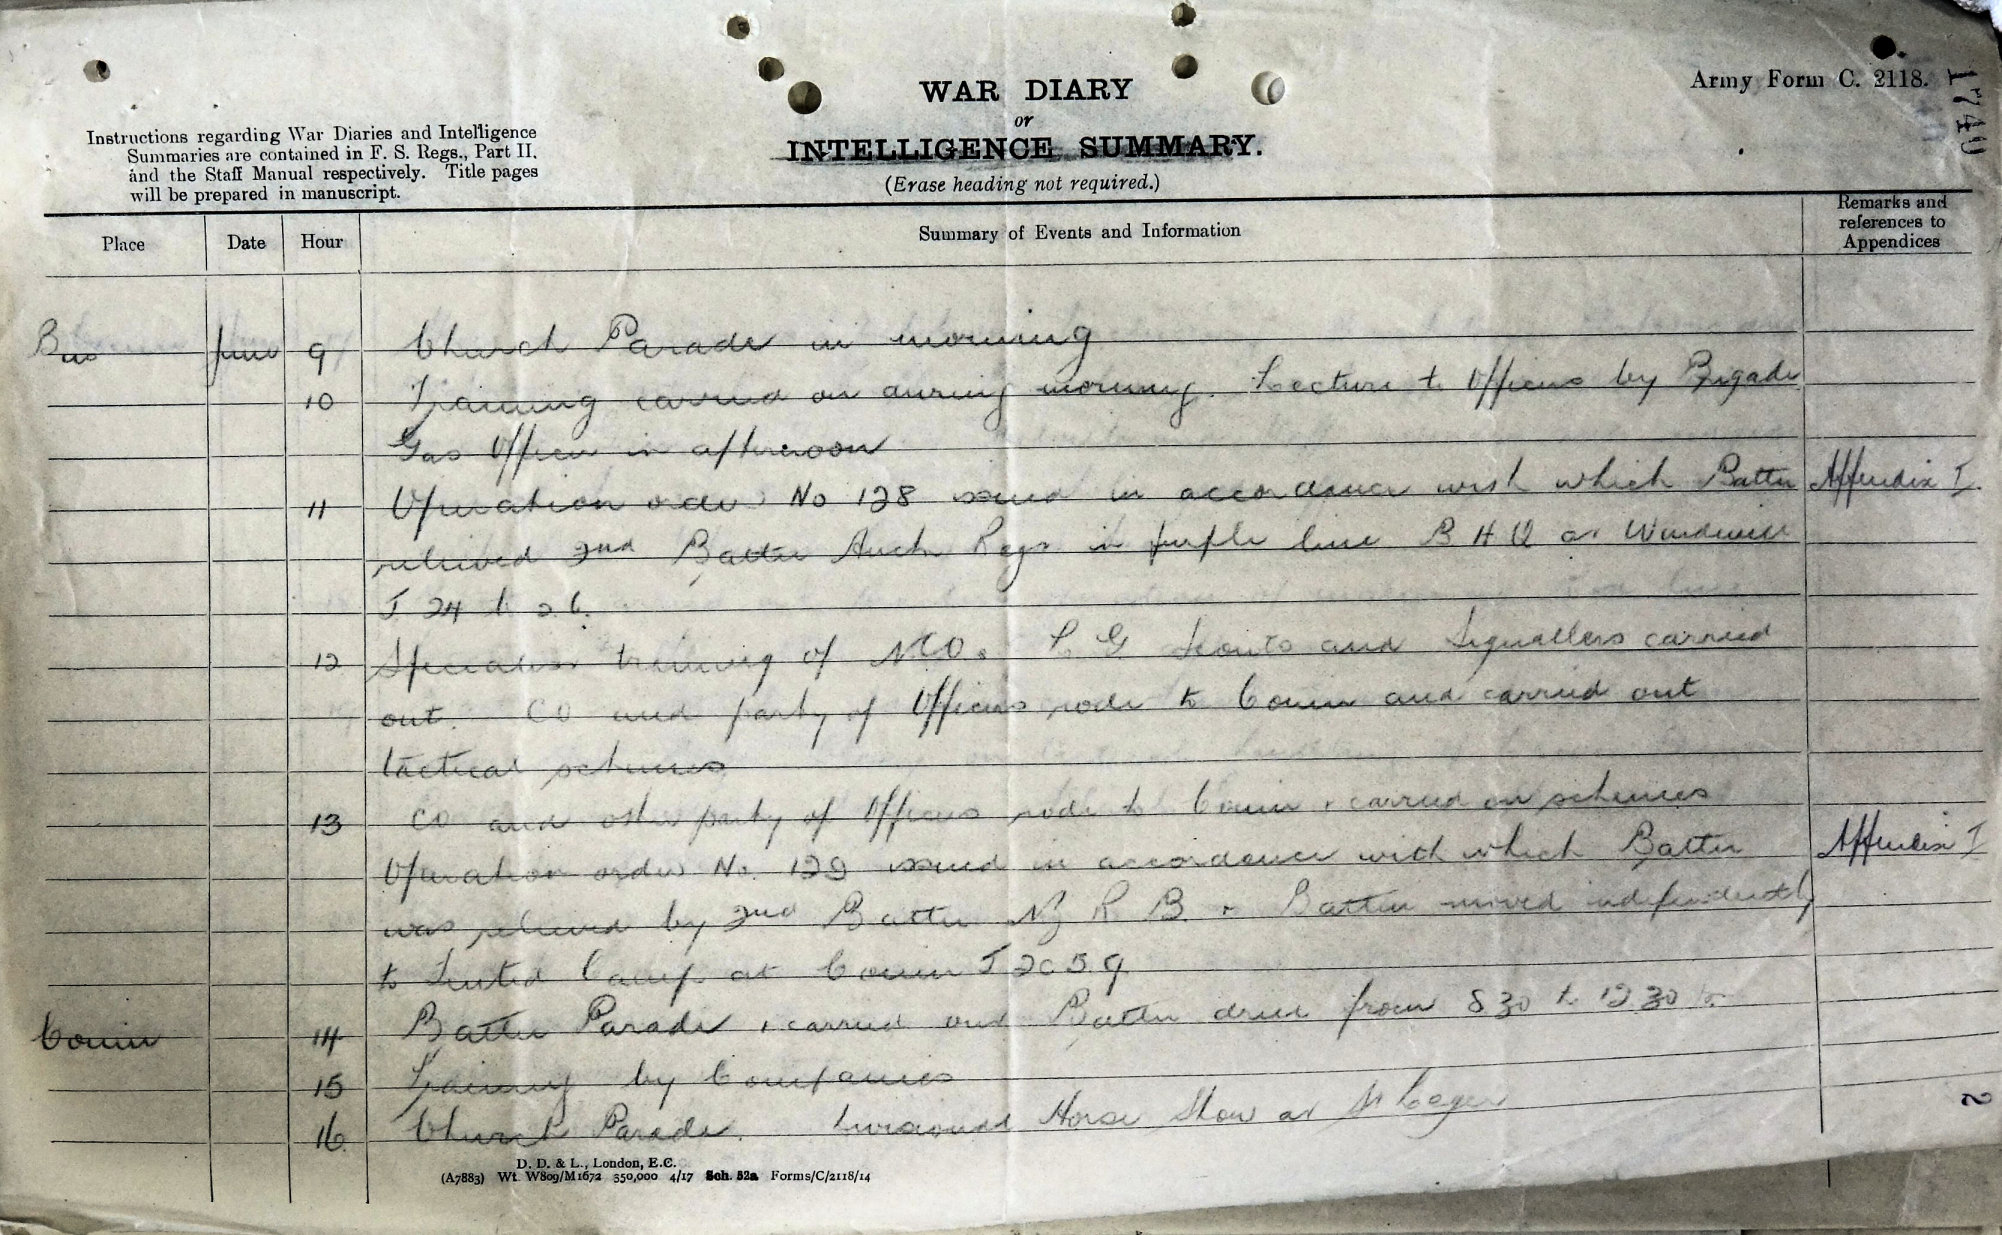 Army Form C. 2118.
WAR DIARY
or
INTELLIGENCE SUMMARY.
(Erase heading not required.)
Instructions regarding War Diaries and Intelligence
Summaries are contained in F. S. Regs., Part II.
and the Staff Manual respectively. Title pages
will be prepared in manuscript.
Place Date Hour Summary of Events and Information Remarks and references to Appendices
Bus June 9 Church Parade in morning
10 Training carried on during morning. Lecture to Officers by Brigade
Gas Officer in afternoon
11 Operation order No 128 issued in accordance with which Battn Appendix I
relieved 2nd Battn Auck Regt in purple line B H Q at
J 24 b 2 6.
12 Specialist training of NCOs L G Scouts and Signallers carried
out. CO and party of Officers rode to Couin and carried out
tactical schemes
13 CO and other party of Officers rode to Couin & carried on schemes
Operation order No. 129 issued in accordance with which Battn Appendix I
was relieved by 2nd Battn NZ R B. & Battn moved independently
to Tented Camp at Couin J 2 c 5 9
Couin 14 Battn Parade & carried out Battn drill from 8 30 to 12 30
15 Training by Companies
16 Church Parade. Divisional Horse Show at St Leger
2
D. D. & L., London, E.C.
(A7883) Wt. W809/M1672 350,000 4/17 Sch. 52a Forms/C/2118/14